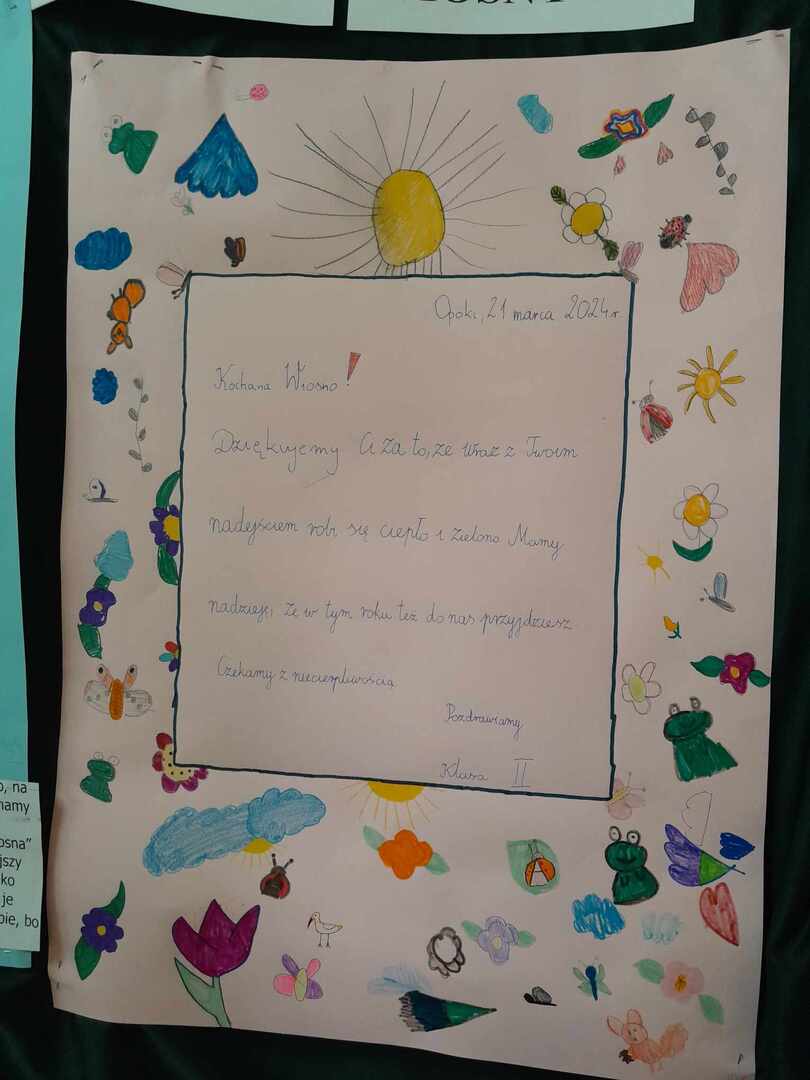 Opoki, 21 marca 2024 r.
Kochana Wiosno!
Dziękujemy Ci za to, że wraz z Twoim
nadejściem robi się ciepło i zielono. Mamy
nadzieję, że w tym roku też do nas przyjdziesz.
Czekamy z niecierpliwością
Pozdrawiamy
Klasa II
o, na
mamy
osna"
jszy
ko
je
bie, bo